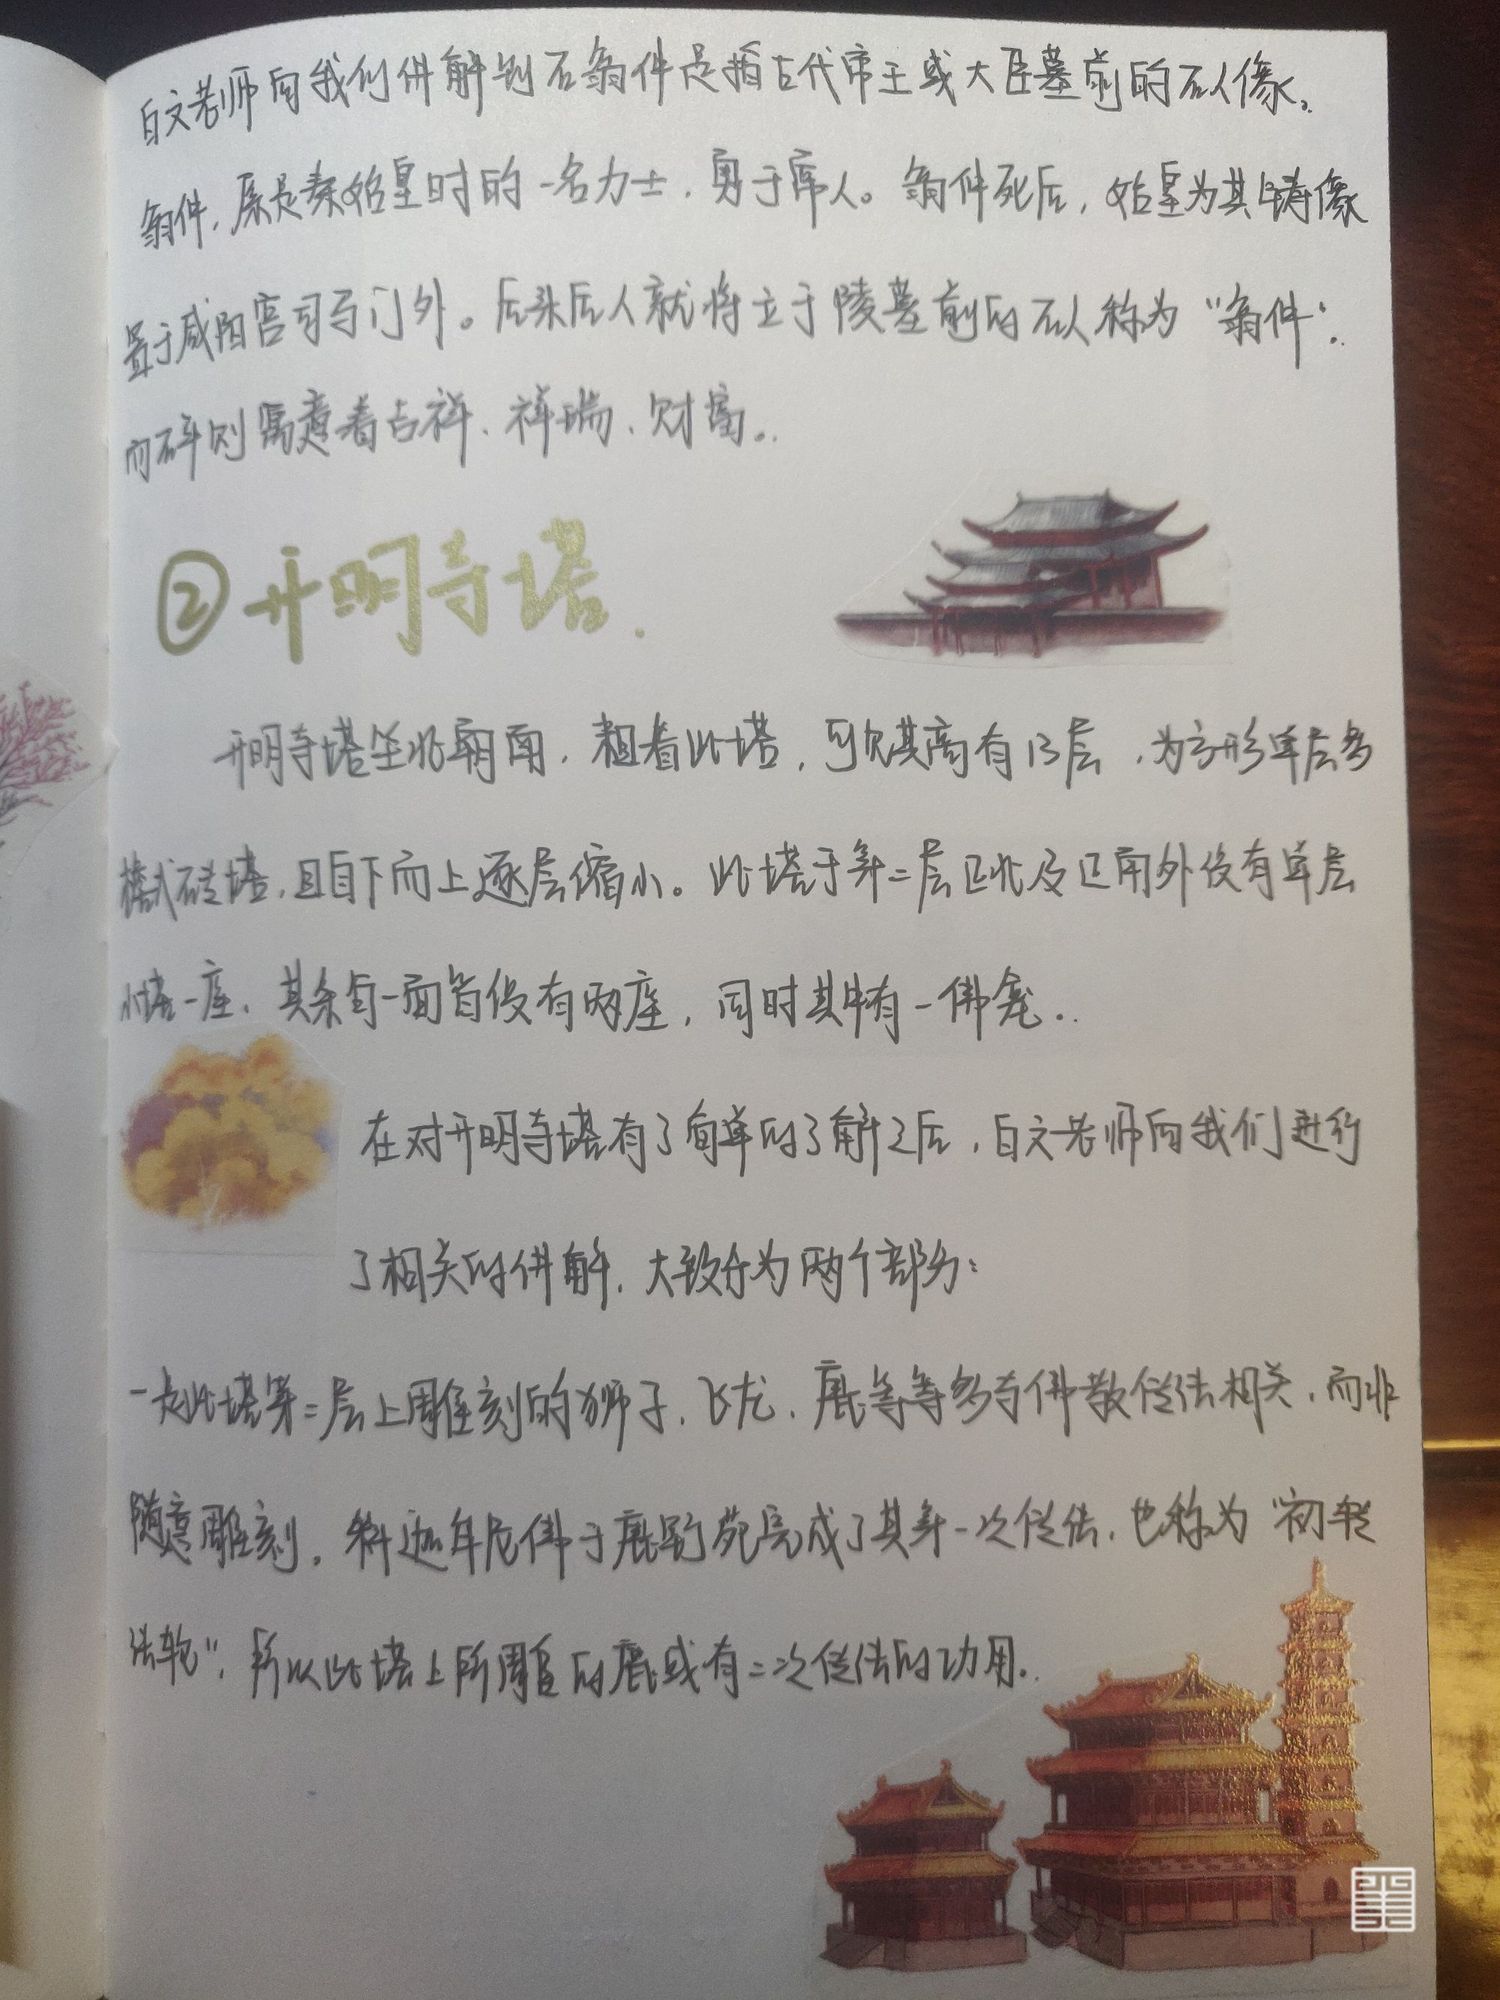 白文老师向我们讲解到石翁仲是指古代帝王或大臣墓前的石人像。
翁仲,原是秦始皇时的一名力士,勇于席人。翁仲死后,始皇为其铸像
置于咸阳宫司马门外。后来后人就将立于陵墓前的石人称为"翁仲".
而石羊则寓意着吉祥、祥瑞、财富。
②开明寺塔.
开明寺塔坐北朝南,粗看此塔,可见其高有13层,为方形单层多
檐式砖塔,且自下而上逐层缩小。此塔于第二层正北及正南外设有单层
小塔一座,其余每一面皆设有两座,同时其中有一佛龛。
在对开明寺塔有了简单的了解之后,白文老师向我们进行
了相关的讲解,大致分为两个部分:
一是此塔第二层上周雕刻的狮子、飞龙、鹿等等多与佛教传法相关,而非
随意雕刻。释迦牟尼佛于鹿野苑完成了其第一次传法,也称为"初转
法轮",所以此塔上所周围的鹿或有二次传法的功用。